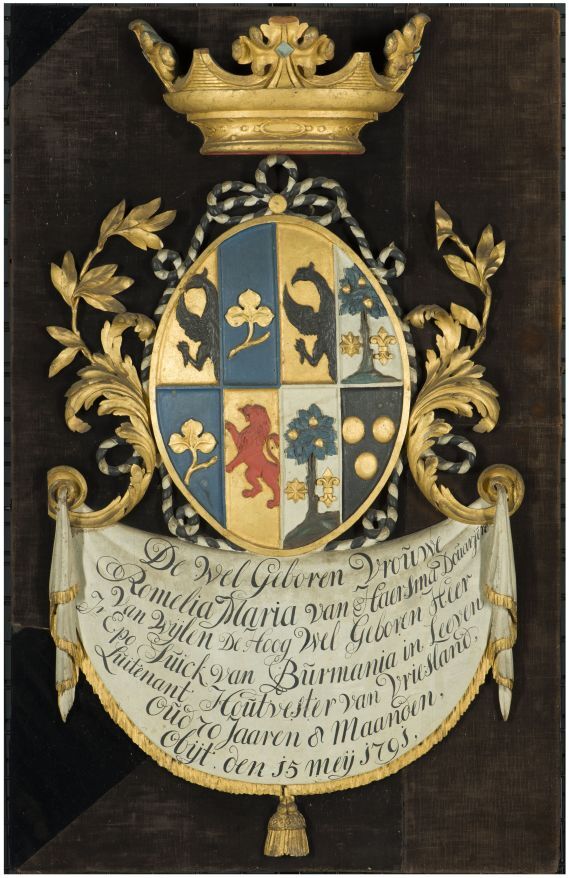 De Wel Geboren Vrouwe
Romelia Maria van Haersma Douarjere
Van Wijlen De Hoog Wel Geboren Heer
Epo Juick van Burmania in Leeven
Luitenant Houtvester van Vriesland,
Oud 70 Jaaren 8 Maanden,
Obijt. den 15 meij 1791.